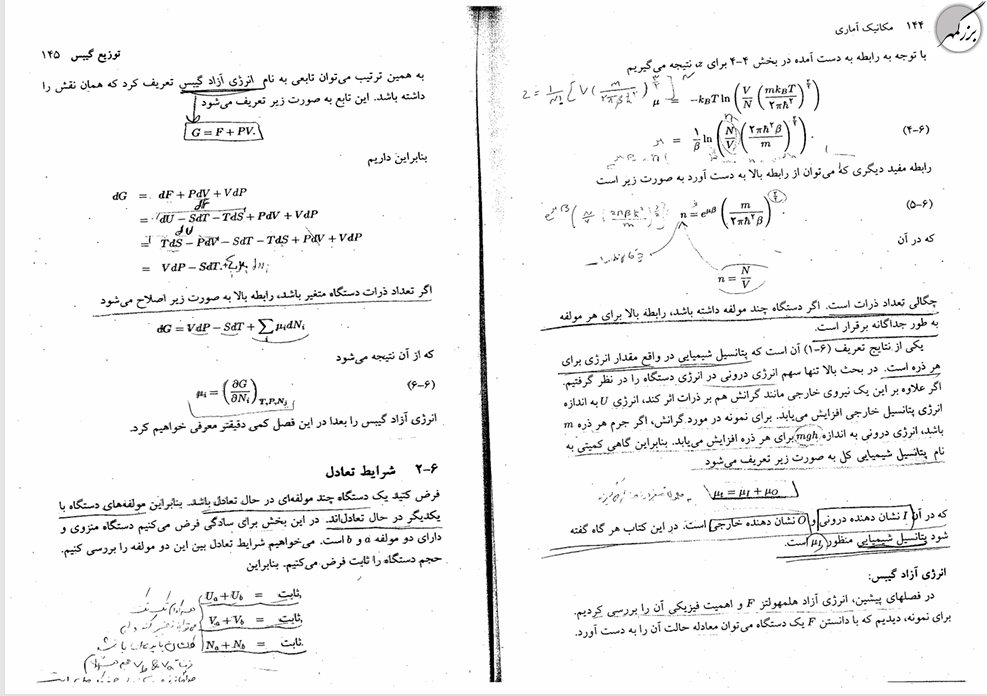 بزرگمهر
۱۴۴ مکانیک آماری
با توجه به رابطه به دست آمده در بخش ۴-۴ برای α نتیجه می‌گیریم
μ = -k_BT ln (V/N (mk_BT/۲πħ^۲)^{۳/۲})
= ۱/β ln (N/V (۲πħ^۲β/m)^{۳/۲}). (۴-۶)
رابطه مفید دیگری که می‌توان از رابطه بالا به دست آورد به صورت زیر است
n = e^{μβ} (m/۲πħ^۲β)^{۳/۲}. (۵-۶)
که در آن
n = N/V
چگالی تعداد ذرات است. اگر دستگاه چند مولفه داشته باشد، رابطه بالا برای هر مولفه
به طور جداگانه برقرار است.
یکی از نتایج تعریف (۶-۱) آن است که پتانسیل شیمیایی در واقع مقدار انرژی برای
هر ذره است. در بحث بالا تنها سهم انرژی درونی در انرژی دستگاه را در نظر گرفتیم.
اگر علاوه بر این یک نیروی خارجی مانند گرانش هم بر ذرات اثر کند، انرژی U به اندازه
انرژی پتانسیل خارجی افزایش می‌یابد. برای نمونه در مورد گرانش، اگر جرم هر ذره m
باشد، انرژی درونی به اندازه mgh برای هر ذره افزایش می‌یابد. بنابراین گاهی کمیتی به
نام پتانسیل شیمیایی کل به صورت زیر تعریف می‌شود
μ_t = μ_I + μ_O
که در آن I نشان دهنده درونی و O نشان دهنده خارجی است. در این کتاب هر گاه گفته
شود پتانسیل شیمیایی منظور μ_I است.
انرژی آزاد گیبس:
در فصلهای پیشین، انرژی آزاد هلمهولتز F و اهمیت فیزیکی آن را بررسی کردیم.
برای نمونه، دیدیم که با دانستن F یک دستگاه می‌توان معادله حالت آن را به دست آورد.
توزیع گیبس ۱۴۵
به همین ترتیب می‌توان تابعی به نام انرژی آزاد گیبس تعریف کرد که همان نقش را
داشته باشد. این تابع به صورت زیر تعریف می‌شود
G = F + PV.
بنابراین داریم
dG = dF + PdV + VdP
dF
= dU - SdT - TdS + PdV + VdP
dU
= TdS - PdV - SdT - TdS + PdV + VdP
= VdP - SdT.
اگر تعداد ذرات دستگاه متغیر باشد، رابطه بالا به صورت زیر اصلاح می‌شود
dG = VdP - SdT + ∑ μ_i dN_i
که از آن نتیجه می‌شود
μ_i = (∂G/∂N_i)_{T,P,N_j} (۶-۶)
انرژی آزاد گیبس را بعدا در این فصل کمی دقیقتر معرفی خواهیم کرد.
۲-۶ شرایط تعادل
فرض کنید یک دستگاه چند مولفه‌ای در حال تعادل باشد. بنابراین مولفه‌های دستگاه با
یکدیگر در حال تعادل‌اند. در این بخش برای سادگی فرض می‌کنیم دستگاه منزوی و
دارای دو مولفه a و b است. می‌خواهیم شرایط تعادل بین این دو مولفه را بررسی کنیم.
حجم دستگاه را ثابت فرض می‌کنیم. بنابراین
U_a + U_b = ثابت,
V_a + V_b = ثابت,
N_a + N_b = ثابت.